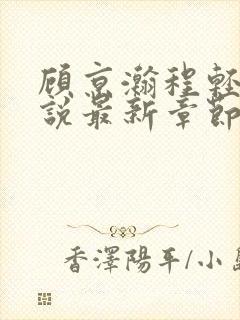 顾京瀚程轻
說最新章節
香澤陽平/小